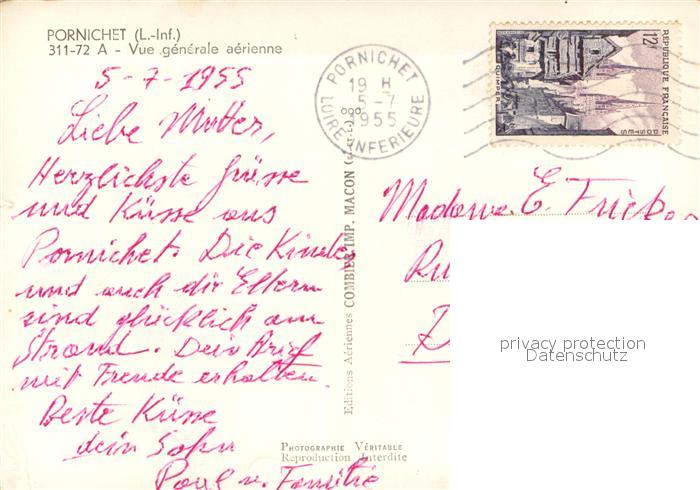 PORNICHET (L.-Inf.)
311-72 A - Vue générale aérienne
5-7-1955
Liebe Mutter,
Herzlichste Grüsse
und Küsse aus
Pornichet. Die Kinder
und auch die Eltern
sind glücklich am
Strand. Dein Brief
mit Freude erhalten.
Beste Küsse
dein Sohn
Paul u. Familie
PHOTOGRAPHIE VÉRITABLE
Reproduction Interdite
Editions Aériennes COMBIER IMP. MACON
PORNICHET
19 H
5-7
1955
LOIRE-INFERIEURE
12F
REPUBLIQUE FRANÇAISE
POSTES
QUIMPER
Madame E. Fricker
privacy protection
Datenschutz